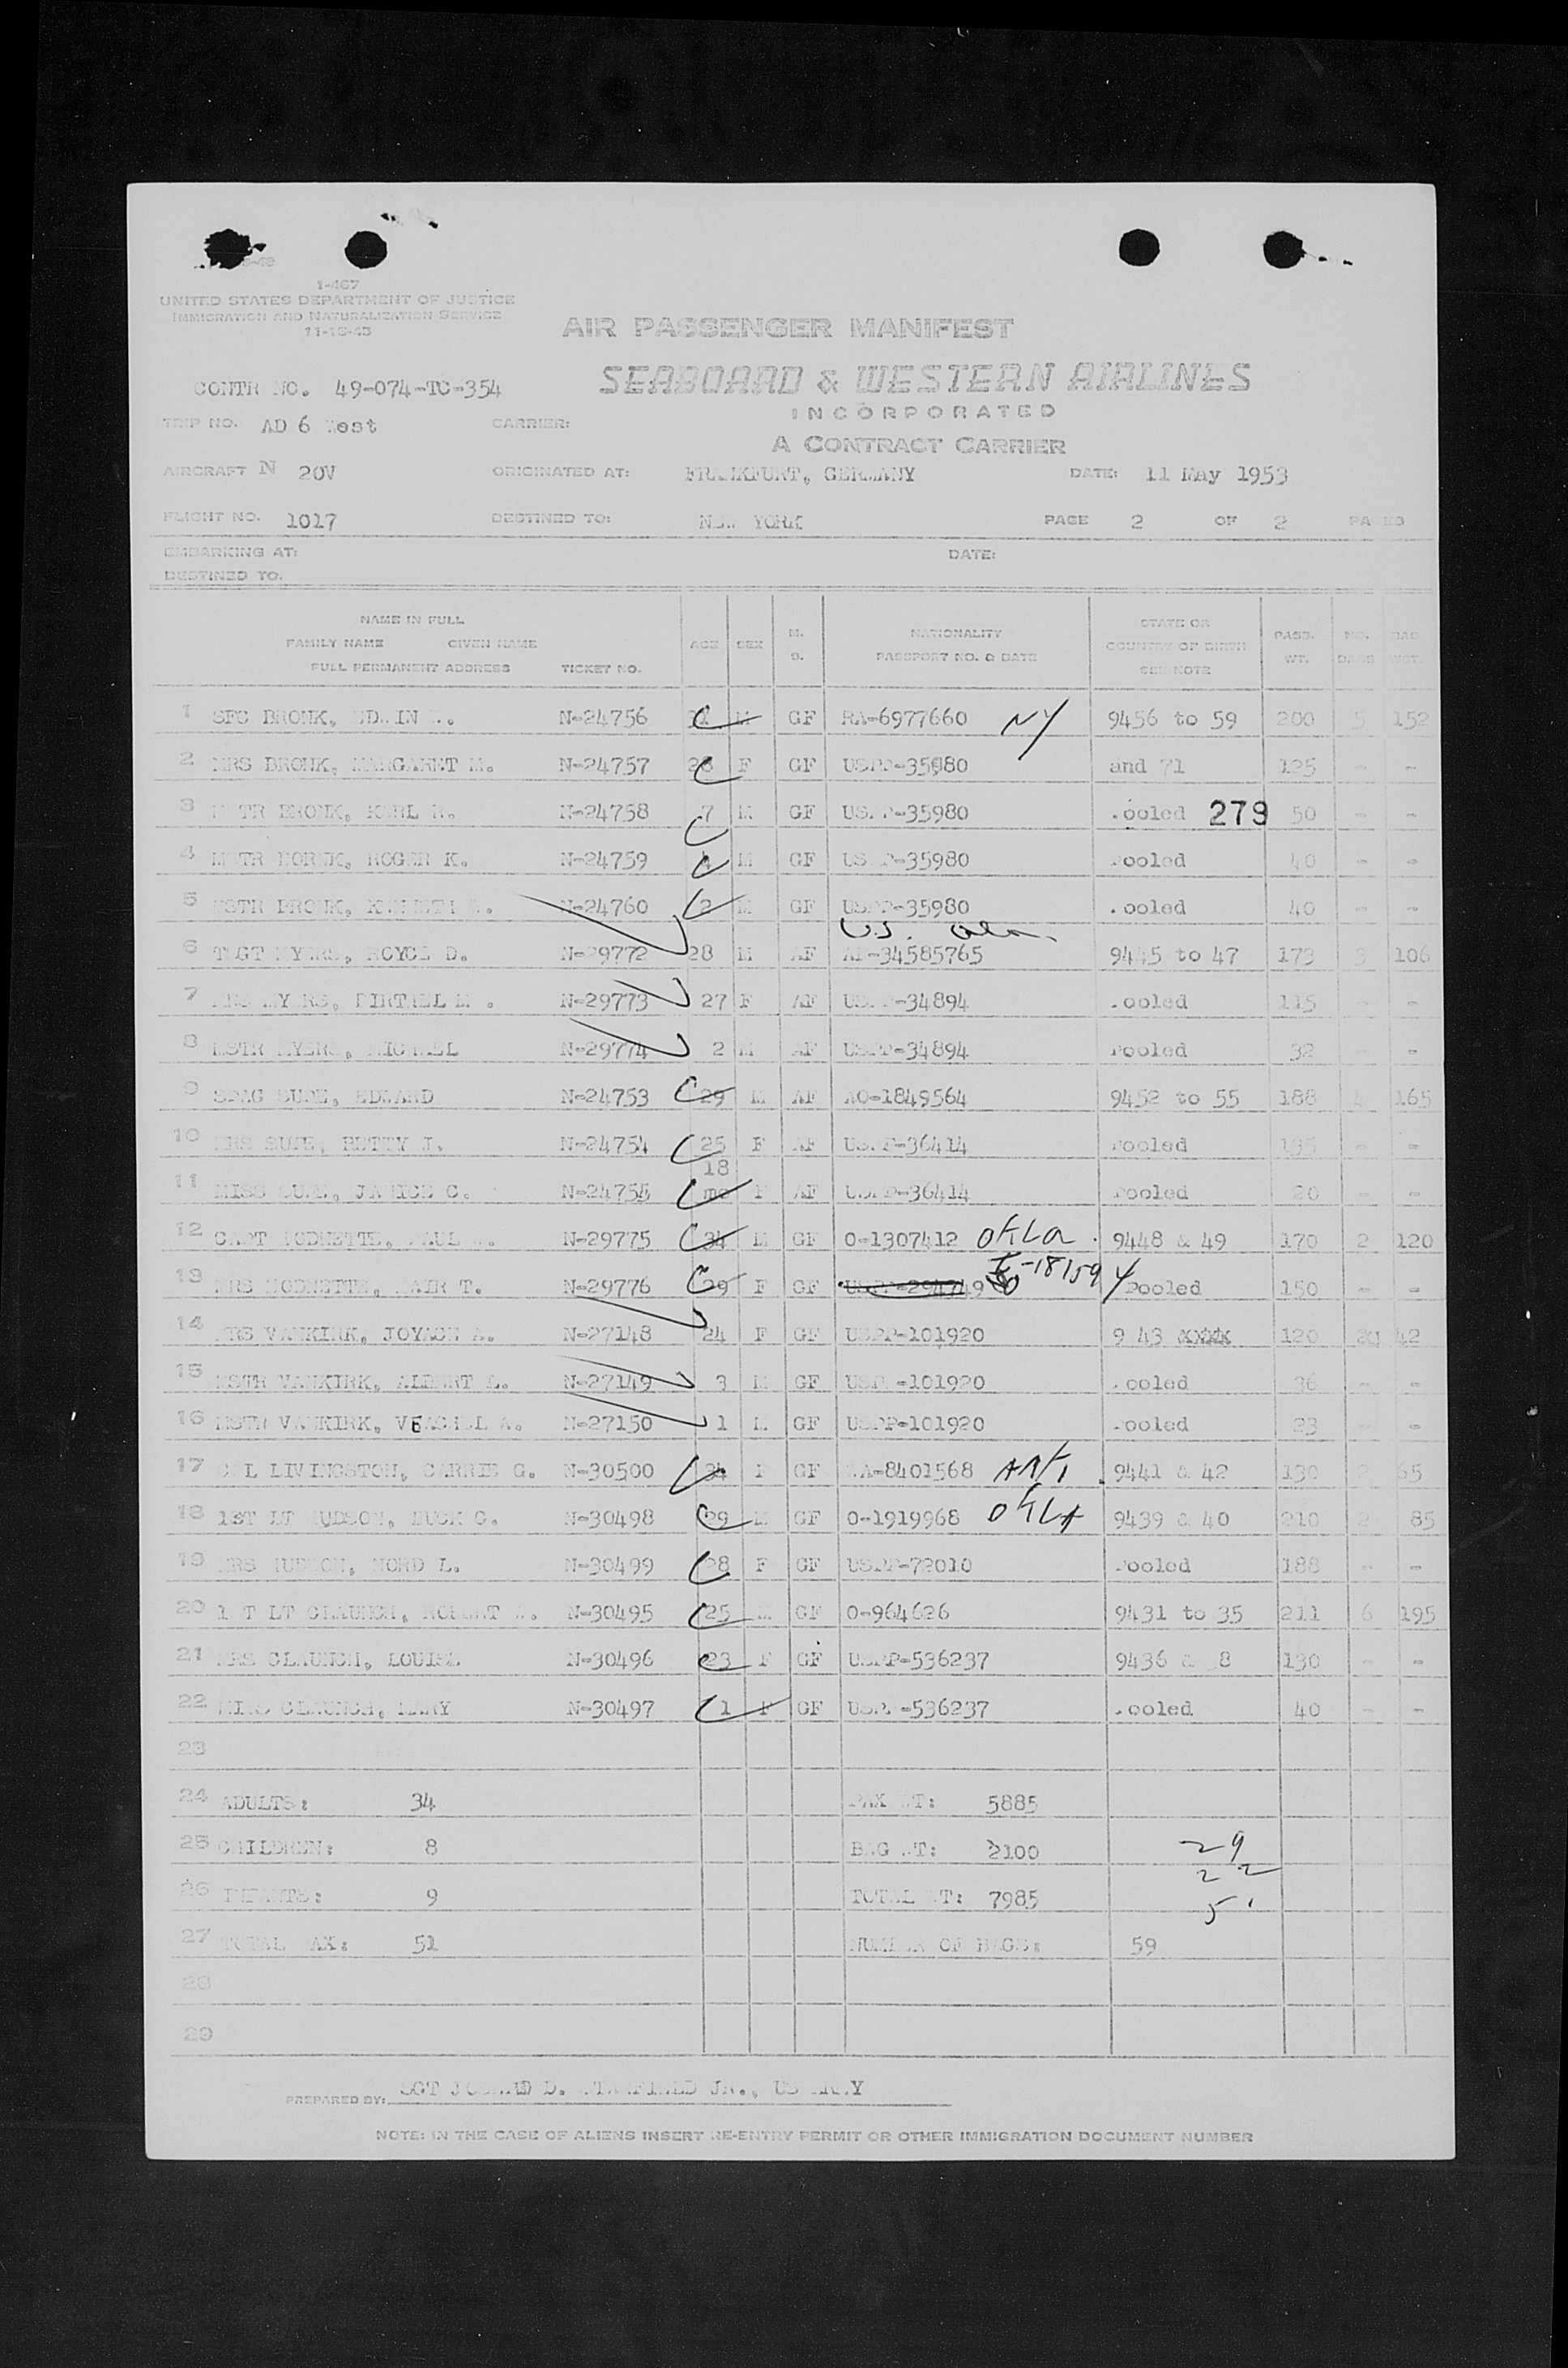 1-467
UNITED STATES DEPARTMENT OF JUSTICE
IMMIGRATION AND NATURALIZATION SERVICE
AIR PASSENGER MANIFEST
SEABOARD & WESTERN AIRLINES
INCORPORATED
A CONTRACT CARRIER
CONTR NO. 49-074-TC-354
TRIP NO. AD 6 West CARRIER:
AIRCRAFT N 20V ORIGINATED AT: FRANKFURT, GERMANY DATE: 11 May 1953
FLIGHT NO. 1017 DESTINED TO: NEW YORK PAGE 2 OF 2 PAGES
EMBARKING AT: DATE:
DESTINED TO.
NAME IN FULL
FAMILY NAME GIVEN NAME
FULL PERMANENT ADDRESS TICKET NO. AGE SEX M. S. NATIONALITY PASSPORT NO. & DATE STATE OR COUNTRY OF BIRTH SEE NOTE PASS. WT. NO. BAGS BAG WGT.
1 SFC BRONK, N-24756 M GF RA-6977660 NY 9456 to 59 200 5 152
2 MRS BRONK, MARGARET M. N-24757 28 F GF USPP-35980 and 71 125 - -
3 MSTR BRONK, KARL N-24758 7 M GF USPP-35980 Pooled 279 50 - -
4 MSTR ROGER K. N-24759 4 M GF USPP-35980 Pooled 40 - -
5 MSTR BRONK, N-24760 2 M GF USPP-35980 Pooled 40 - -
6 MYERS, ROYCE D. N-29772 28 M AF AF-34585765 U.S. 9445 to 47 173 3 106
7 MRS MYERS, N-29773 27 F AF USPP-34894 Pooled 115 - -
8 MSTR MYERS, MICHAEL N-29774 2 M AF USPP-34894 Pooled 32 - -
9 EDWARD N-24753 29 M AF AO-1849564 9452 to 55 188 4 165
10 MRS BETTY J. N-24754 25 F AF USPP-36414 Pooled 135 - -
11 MISS JANICE C. N-24755 18 mo F AF USPP-36414 Pooled 20 - -
12 CAPT HODNETTE, PAUL N-29775 34 M GF O-1307412 OKLA. 9448 & 49 170 2 120
13 MRS HODNETTE, T. N-29776 29 F GF Pooled 150 - -
14 MRS VANKIRK, A. N-27148 24 F GF USPP-101920 9 43 xxxx 120 42
15 MSTR VANKIRK, ALBERT L. N-27149 3 M GF USPP-101920 Pooled 36 - -
16 MSTR VANKIRK, A. N-27150 1 M GF USPP-101920 Pooled 23 - -
17 CPL LIVINGSTON, CARRIE G. N-30500 F GF WA-8401568 ARK. 9441 & 42 130 2 65
18 1ST LT HUDSON, BUCK G. N-30498 29 M GF O-1919968 OKLA 9439 & 40 210 2 85
19 MRS HUDSON, L. N-30499 28 F GF USPP-72010 Pooled 188 - -
20 1ST LT CLAUNCH, ROBERT N-30495 25 M GF O-964626 9431 to 35 211 6 195
21 MRS CLAUNCH, LOUISE N-30496 23 F GF USPP-536237 9436 & 8 130 - -
22 MISS CLAUNCH, MARY N-30497 1 F GF USPP-536237 Pooled 40 - -
23
24 ADULTS: 34 PAX WT: 5885
25 CHILDREN: 8 BAG WT: 2100 29
26 INFANTS: 9 TOTAL WT: 7985 22
51
27 TOTAL PAX: 51 NUMBER OF BAGS: 59
28
29
PREPARED BY: SGT D. JR., US ARMY
NOTE: IN THE CASE OF ALIENS INSERT RE-ENTRY PERMIT OR OTHER IMMIGRATION DOCUMENT NUMBER